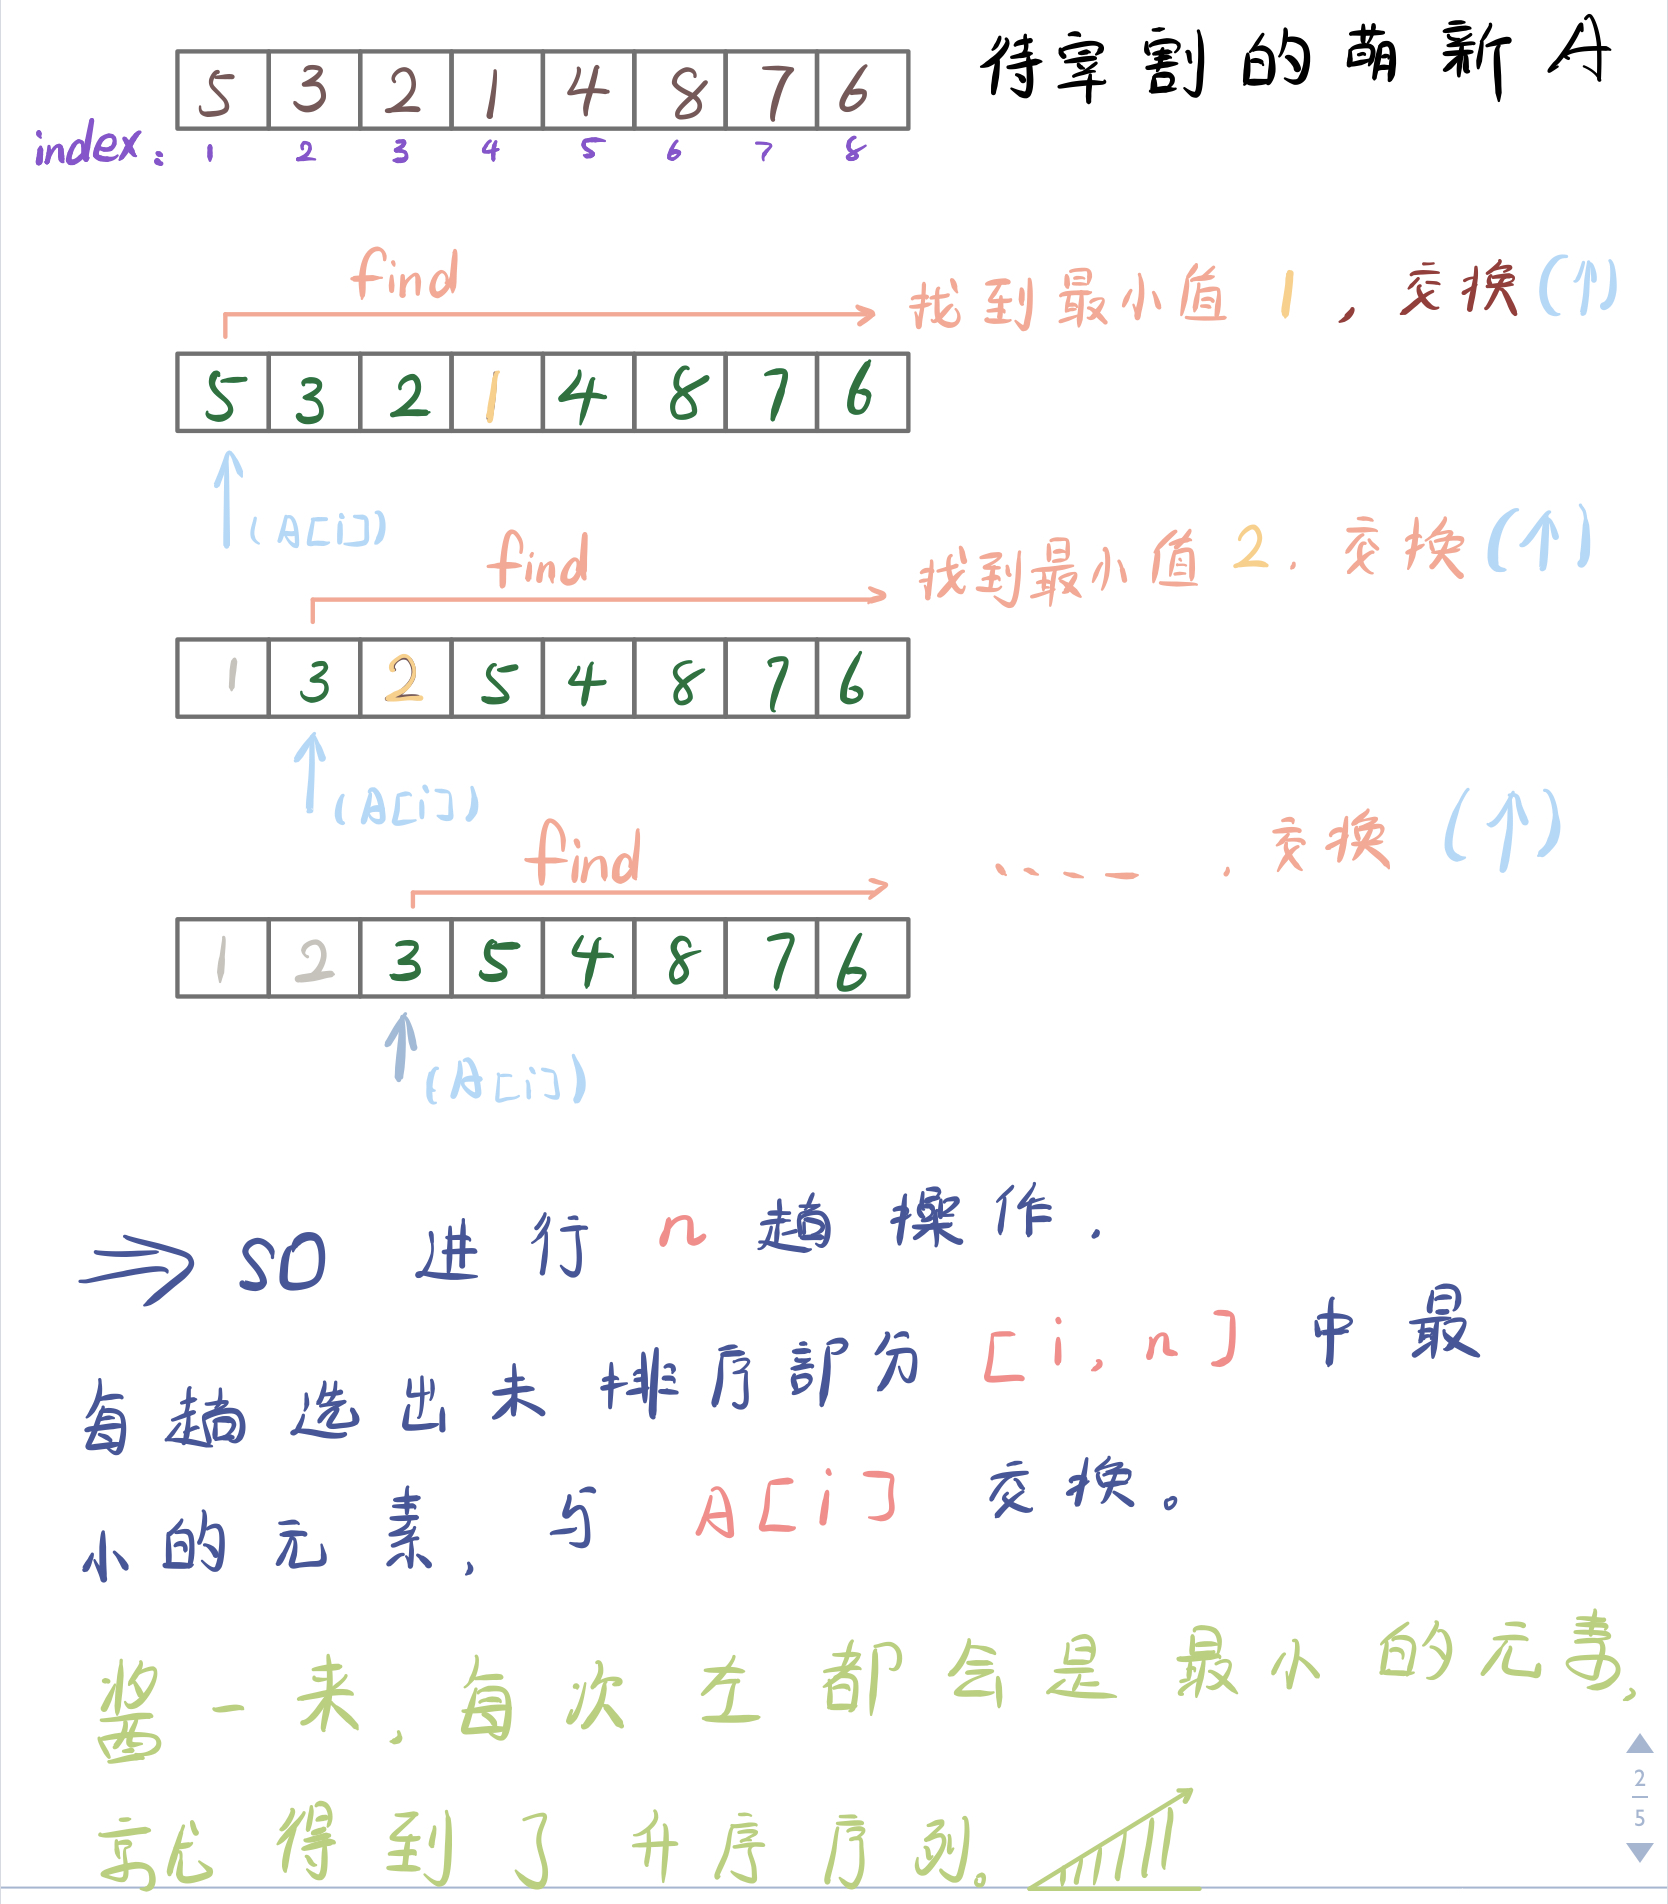 5 3 2 1 4 8 7 6 待宰割的萌新 A
index: 1 2 3 4 5 6 7 8
find
找到最小值 1, 交换(↑)
5 3 2 1 4 8 7 6
(A[i])
find
找到最小值 2. 交换(↑)
1 3 2 5 4 8 7 6
(A[i])
find
..... . 交换 (↑)
1 2 3 5 4 8 7 6
(A[i])
⇒ SO 进行 n 趟操作.
每趟选出未排序部分 [i, n] 中最
小的元素, 与 A[i] 交换。
酱一来, 每次左都会是最小的元素,
就得到了升序序列。
2
5